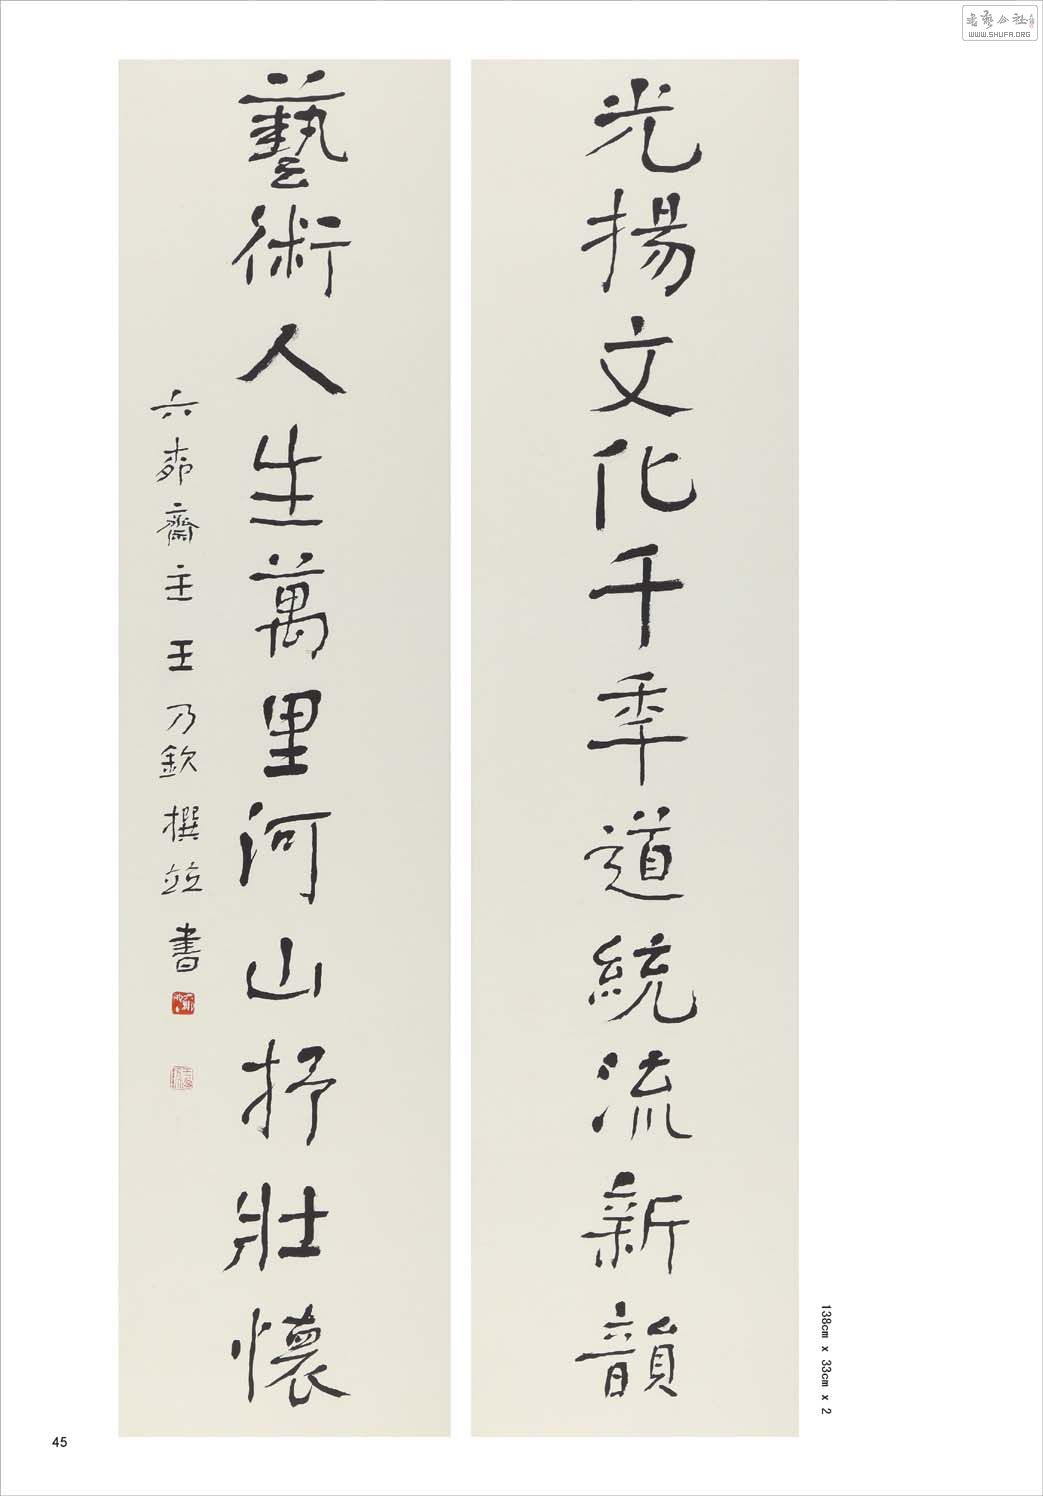 光揚文化千年道統流新韻
藝術人生萬里河山抒壯懷
六郁齋主王乃欽撰竝書
138cm x 33cm x 2
45
WWW.SHUFA.ORG